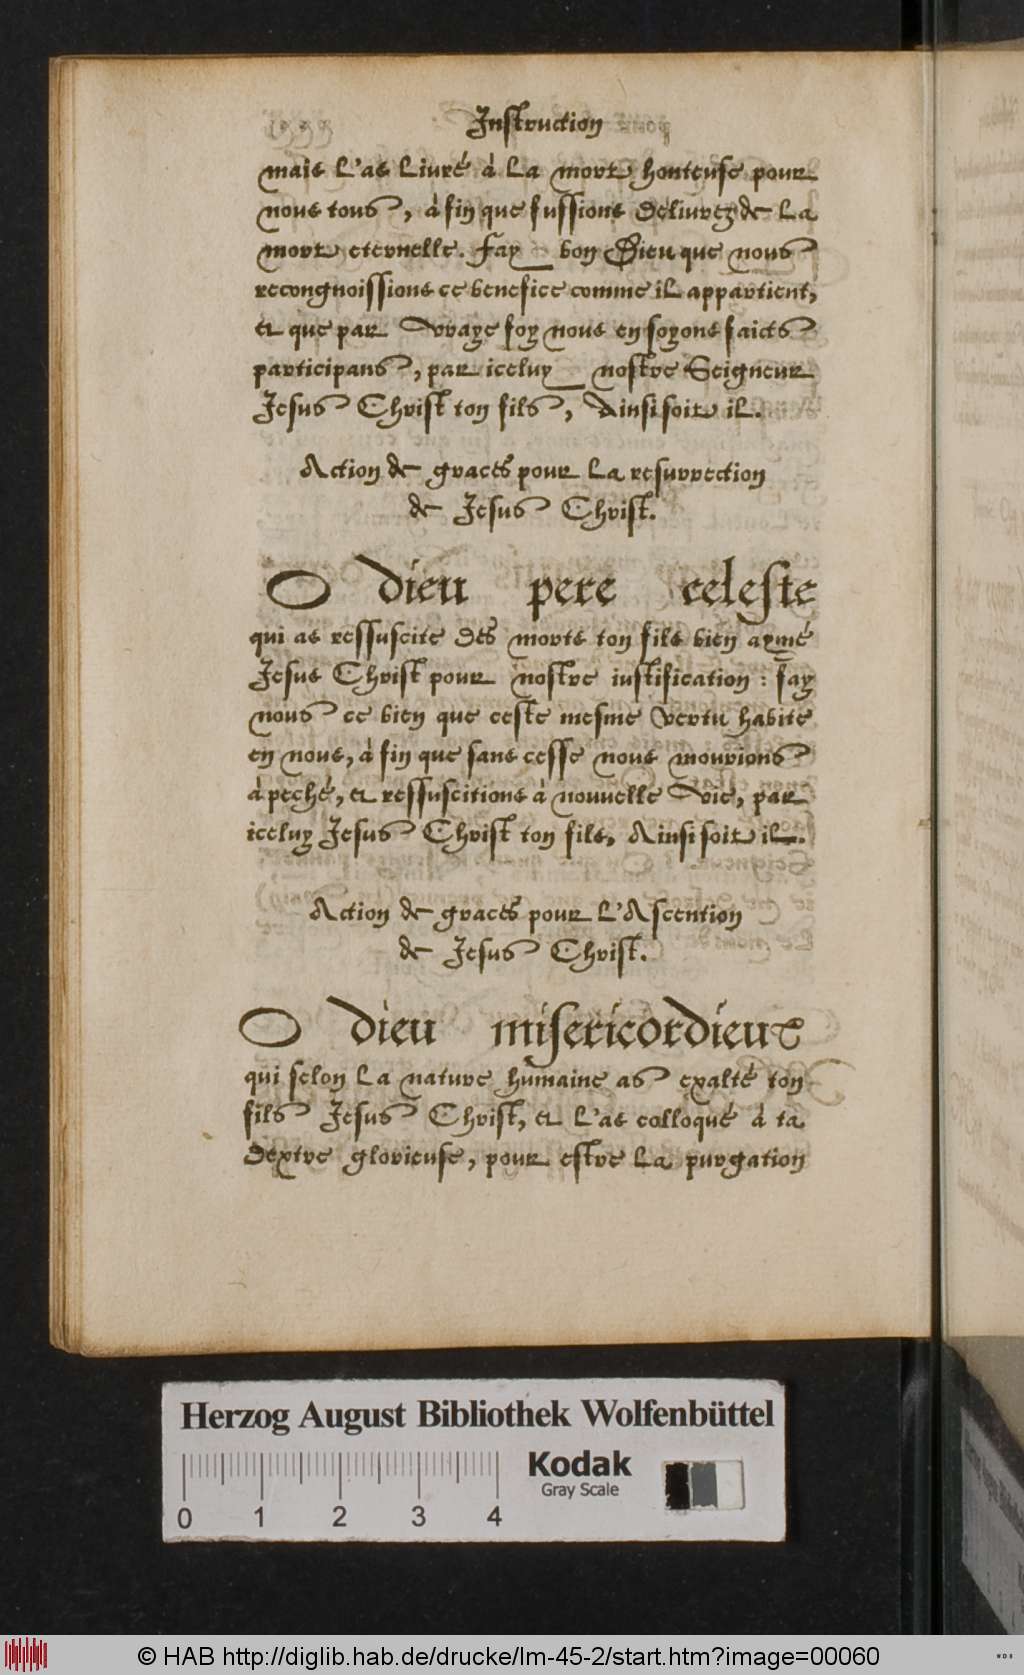 Instruction
mais l'as livré à la mort honteuse pour
nous tous, à fin que fussions delivrez de la
mort eternelle. Fay bon Dieu que nous
recongnoissions ce benefice comme il appartient,
et que par vraye foy nous en soyons faicts
participans, par iceluy nostre Seigneur
Jesus Christ ton fils, Ainsi soit il.
Action de graces pour la resurrection
de Jesus Christ.
O dieu pere celeste
qui as ressuscite des morts ton fils bien aymé
Jesus Christ pour nostre iustification : fay
nous ce bien que ceste mesme vertu habite
en nous, à fin que sans cesse nous mourions
à peché, et ressuscitions à nouvelle vie, par
iceluy Jesus Christ ton fils, Ainsi soit il.
Action de graces pour l'Ascention
de Jesus Christ.
O dieu misericordieux
qui selon la nature humaine as exalté ton
fils Jesus Christ, et l'as colloqué à ta
dextre glorieuse, pour estre la purgation
Herzog August Bibliothek Wolfenbüttel
Kodak
Gray Scale
0 1 2 3 4
© HAB http://diglib.hab.de/drucke/lm-45-2/start.htm?image=00060